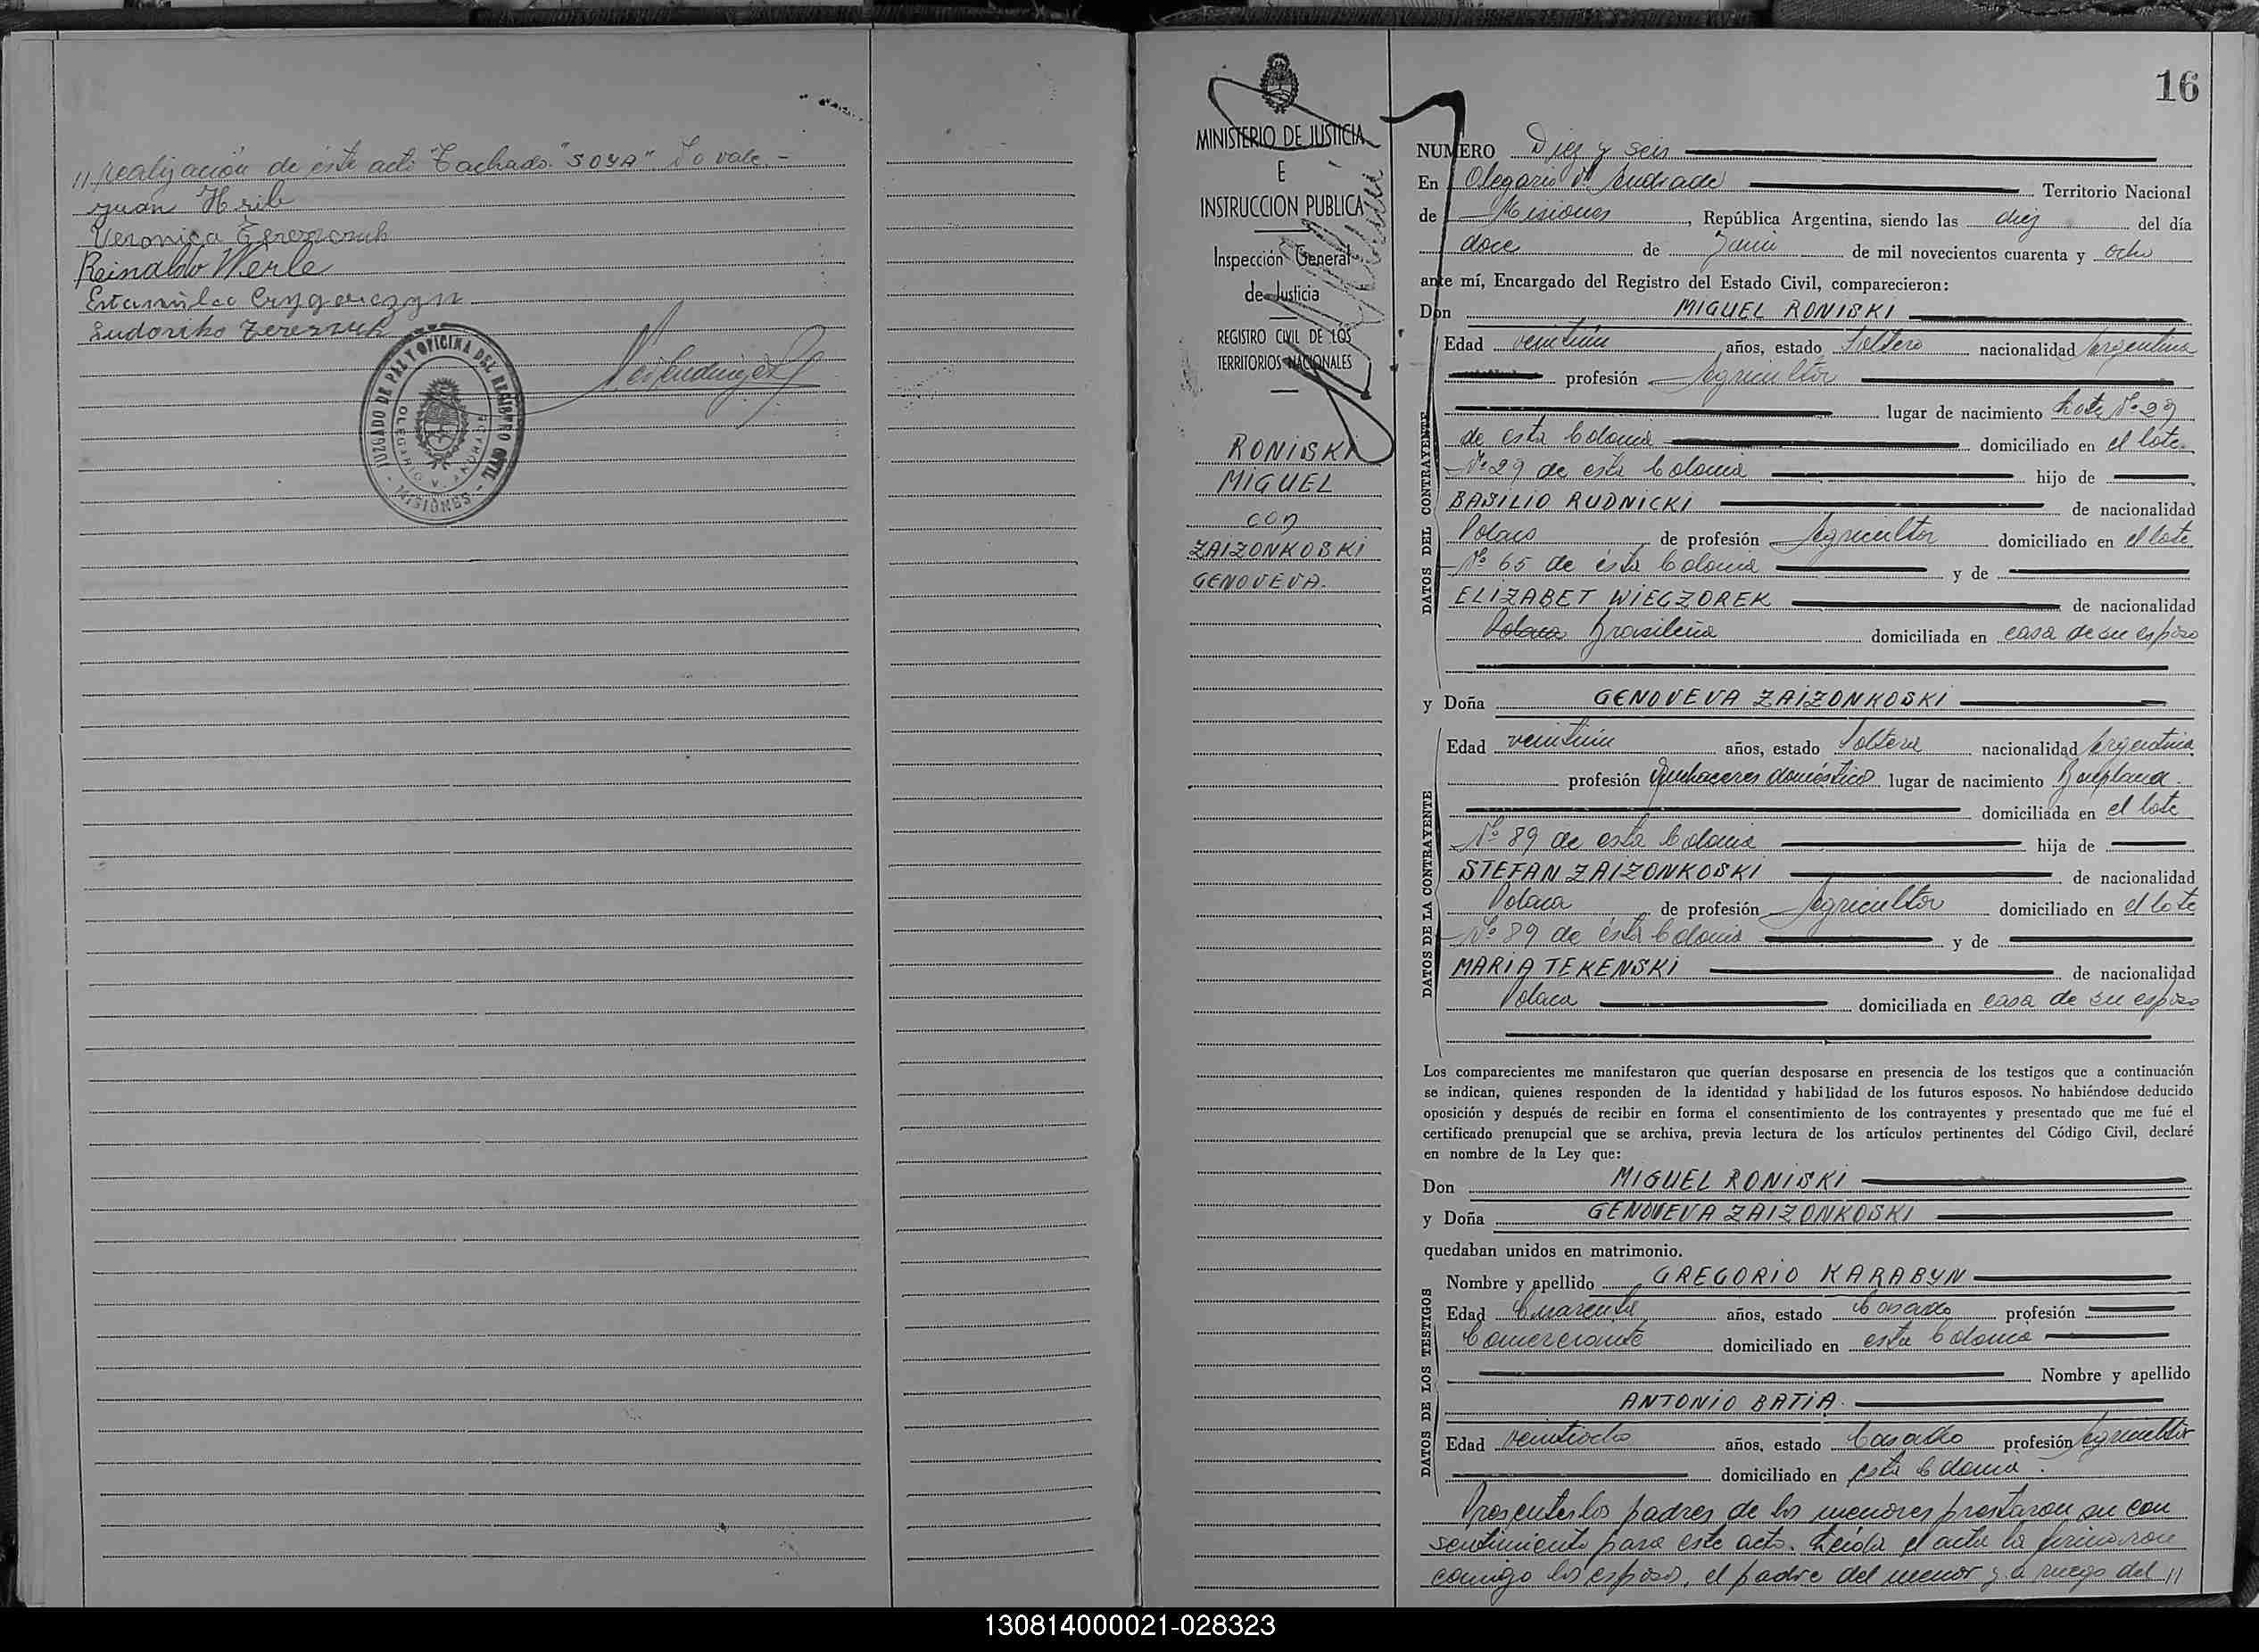 // realización de éste acto "Tachado" "SOYA" No vale -
Juan Hrib
Veronica
Reinaldo Werle
Ludoviko
JUZGADO DE PAZ Y OFICINA DEL REGISTRO CIVIL
OLEGARIO V. ANDRADE
- MISIONES -
MINISTERIO DE JUSTICIA
E
INSTRUCCION PUBLICA
Inspección General
de Justicia
REGISTRO CIVIL DE LOS
TERRITORIOS NACIONALES
RONISKI
MIGUEL
con
ZAIZONKOSKI
GENOVEVA.
16
NUMERO Diez y seis
En Olegario V. Andrade Territorio Nacional
de Misiones, República Argentina, siendo las diez del día
doce de Junio de mil novecientos cuarenta y ocho
ante mí, Encargado del Registro del Estado Civil, comparecieron:
DATOS DEL CONTRAYENTE
Don MIGUEL RONISKI
Edad veintiún años, estado Soltero nacionalidad Argentina
profesión Agricultor
lugar de nacimiento Lote Nº 29
de esta Colonia domiciliado en el lote
Nº 29 de esta Colonia hijo de
BASILIO RUDNICKI de nacionalidad
Polaco de profesión Agricultor domiciliado en el lote
Nº 65 de ésta Colonia y de
ELIZABET WIECZOREK de nacionalidad
Polaca Brasileña domiciliada en casa de su esposo
y Doña GENOVEVA ZAIZONKOSKI
DATOS DE LA CONTRAYENTE
Edad veintiún años, estado Soltera nacionalidad Argentina
profesión Quehaceres domésticos lugar de nacimiento Bonpland
domiciliada en el lote
Nº 89 de esta Colonia hija de
STEFAN ZAIZONKOSKI de nacionalidad
Polaca de profesión Agricultor domiciliado en el lote
Nº 89 de ésta Colonia y de
MARIA TEKENSKI de nacionalidad
Polaca domiciliada en casa de su esposo
Los comparecientes me manifestaron que querían desposarse en presencia de los testigos que a continuación
se indican, quienes responden de la identidad y habilidad de los futuros esposos. No habiéndose deducido
oposición y después de recibir en forma el consentimiento de los contrayentes y presentado que me fué el
certificado prenupcial que se archiva, previa lectura de los artículos pertinentes del Código Civil, declaré
en nombre de la Ley que:
Don MIGUEL RONISKI
y Doña GENOVEVA ZAIZONKOSKI
quedaban unidos en matrimonio.
DATOS DE LOS TESTIGOS
Nombre y apellido GREGORIO KARABYN
Edad Cuarenta años, estado Casado profesión
Comerciante domiciliado en esta Colonia
Nombre y apellido
ANTONIO BATIA.
Edad veintiocho años, estado Casado profesión Agricultor
domiciliado en esta Colonia.
Presentes los padres de los menores prestaron su con
sentimiento para este acto. Leída el acta la firmaron
conmigo los esposos, el padre del menor y a ruego del //
130814000021-028323